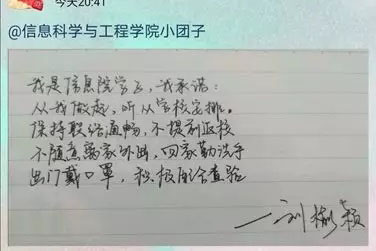 今天20:41
@信息科学与工程学院小团子
我是信息院学子,我承诺:
从我做起,听从学校安排。
保持联络通畅,不提前返校
不随意离家外出,回家勤洗手
出门戴口罩,积极配合查验